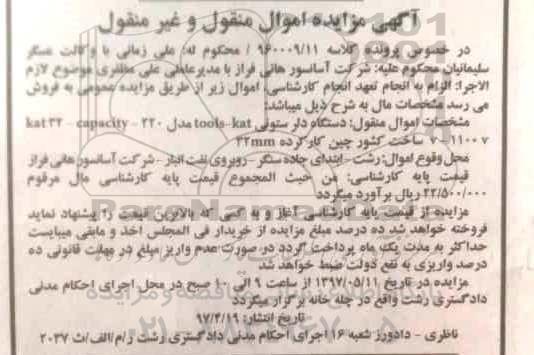 آگهی مزایده اموال منقول و غیر منقول
در خصوص پرونده کلاسه ۹۶۰۰۰۹/۱۱ / محکوم له: علی زمانی با وکالت عسگر
سلیمانیان محکوم علیه: شرکت آسانسور هانی فراز با مدیرعاملی علی مظفری موضوع لازم
الاجرا: الزام به انجام تعهد انجام کارشناسی، اموال زیر از طریق مزایده عمومی به فروش
می رسد مشخصات مال به شرح ذیل میباشد:
مشخصات اموال منقول: دستگاه دلر ستونی tools-kat مدل ۲۲۰ - kat ۳۲ - capacity
۷-۱۱۰۰ ۷ ساخت کشور چین کارکرده ۳۲mm
محل وقوع اموال: رشت - ابتدای جاده سنگر - روبروی نفت انبار - شرکت آسانسور هانی فراز
قیمت پایه کارشناسی: من حیث المجموع قیمت پایه کارشناسی مال مرقوم
۲۲/۵۰۰/۰۰۰ ریال برآورد میگردد
مزایده از قیمت پایه کارشناسی آغاز و به کسی که بالاترین قیمت را پیشنهاد نماید
فروخته خواهد شد ده درصد مبلغ مزایده از خریدار فی المجلس اخذ و مابقی میبایست
حداکثر به مدت یک ماه پرداخت گردد در صورت عدم واریز مبلغ در مهلت قانونی ده
درصد واریزی به نفع دولت ضبط خواهد شد
مزایده در تاریخ ۱۳۹۷/۰۵/۱۱ از ساعت ۹ الی ۱۰ صبح در محل اجرای احکام مدنی
دادگستری رشت واقع در چله خانه برگزار میگردد
تاریخ انتشار: ۹۷/۴/۱۹
ناظری - دادورز شعبه ۱۶ اجرای احکام مدنی دادگستری رشت ر/م/الف/ث ۲۰۳۷